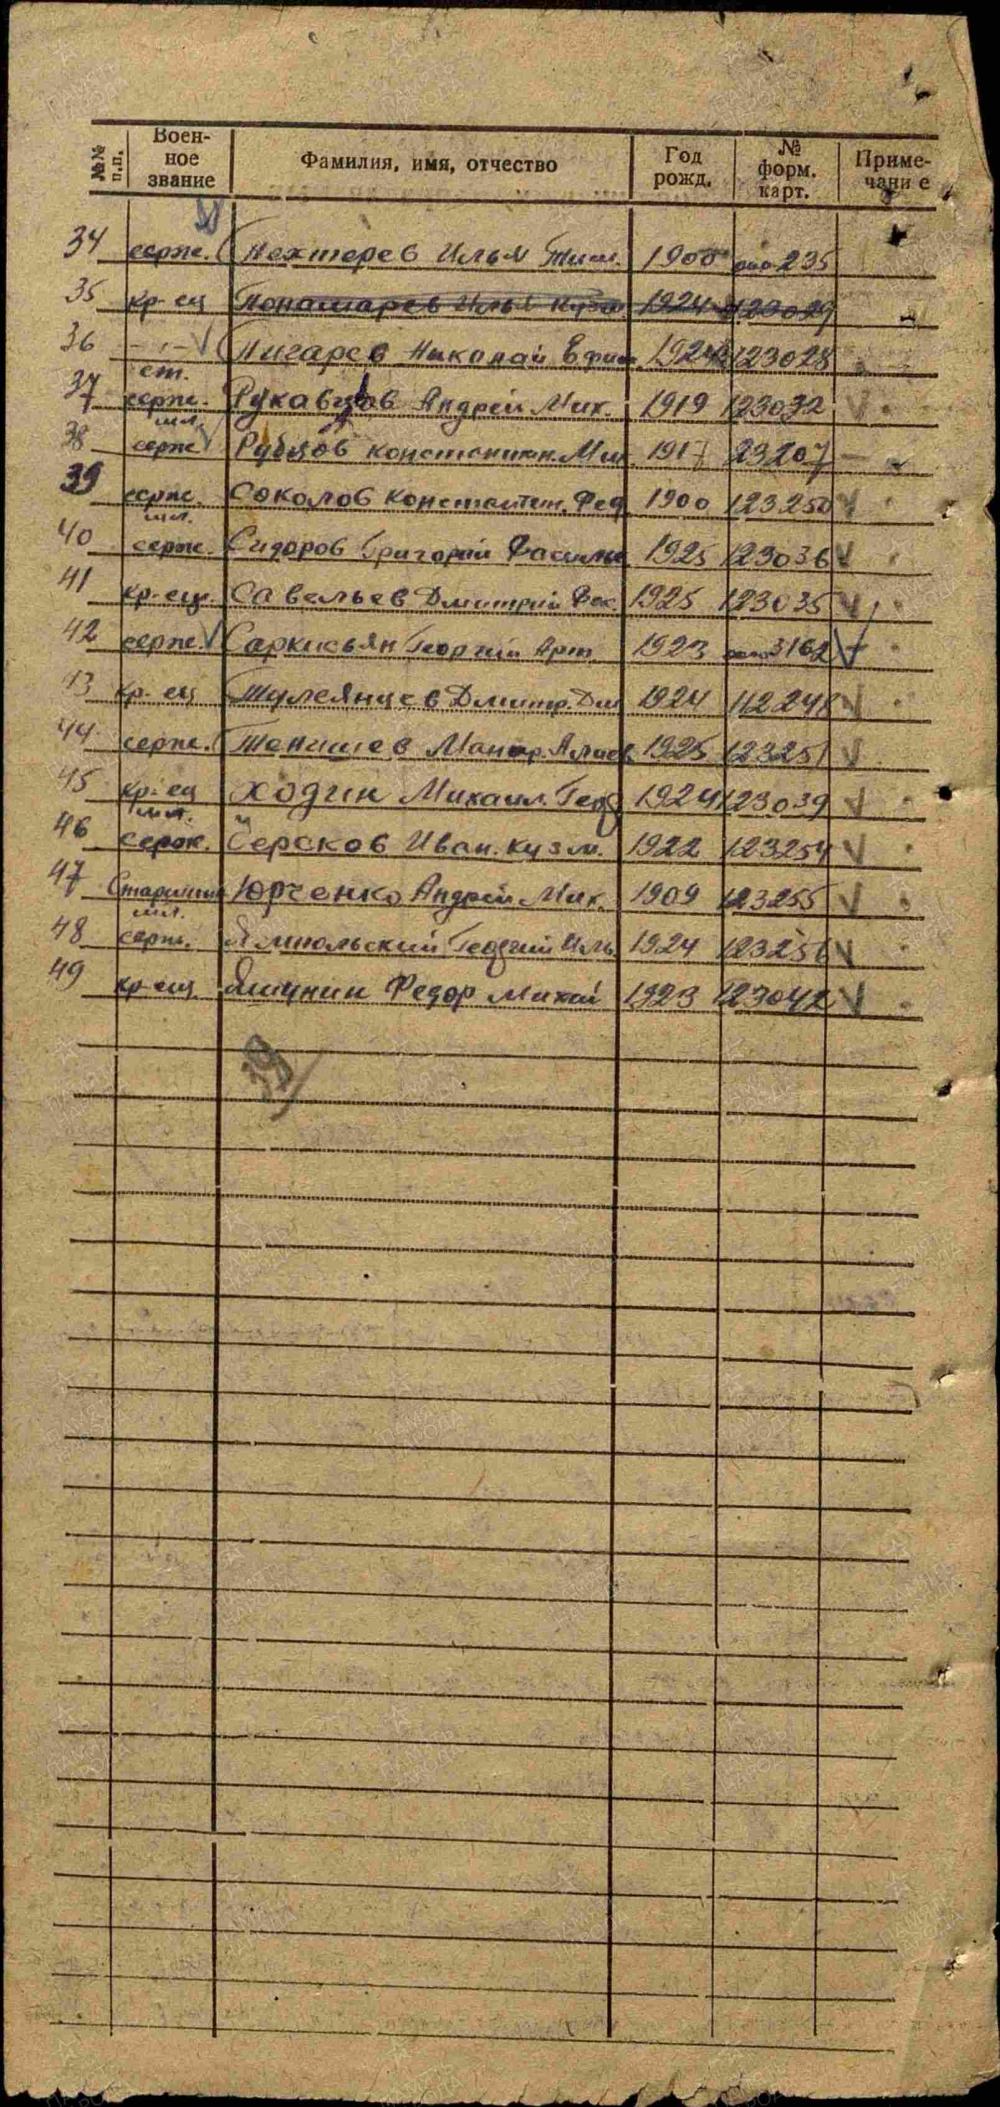 №№ п.п. Военное звание Фамилия, имя, отчество Год рожд. № форм. карт. Примечание
34 серж. Нехтерев Илья Тим. 1900 235
35 кр-ец Понамарев Илья Кузм 1924 123029
36 -"- Пигарев Николай Ефим. 1924 123028
37 ст. серж. Рукавцов Андрей Мих. 1919 123032 V
38 мл. серж V Рубцов Константин. Мих 1917 23207 —
39 серж. Соколов Констактин. Фед. 1900 123250 V
40 мл. серж. Сидоров Григорий Василь 1925 123036 V
41 кр-ец. Савельев Дмитрий Вас. 1925 123035 V
42 серж. V Саркисьян Георгий Арт. 1923 3162 V
43 кр-ец Дмитр. 1924 112248 V
44 серж. Тенишев 1925 123251 V
45 кр-ец Ходин Михаил. Георг 1924 123039 V
46 мл. серж. Серсков Иван. Кузм. 1922 123254 V
47 Старшина Юрченко Андрей Мих. 1909 123255 V
48 мл. серж. Ямпольский Георгий Иль 1924 123256 V
49 кр-ец Яшунин Федор Михай 1923 123042 V
39